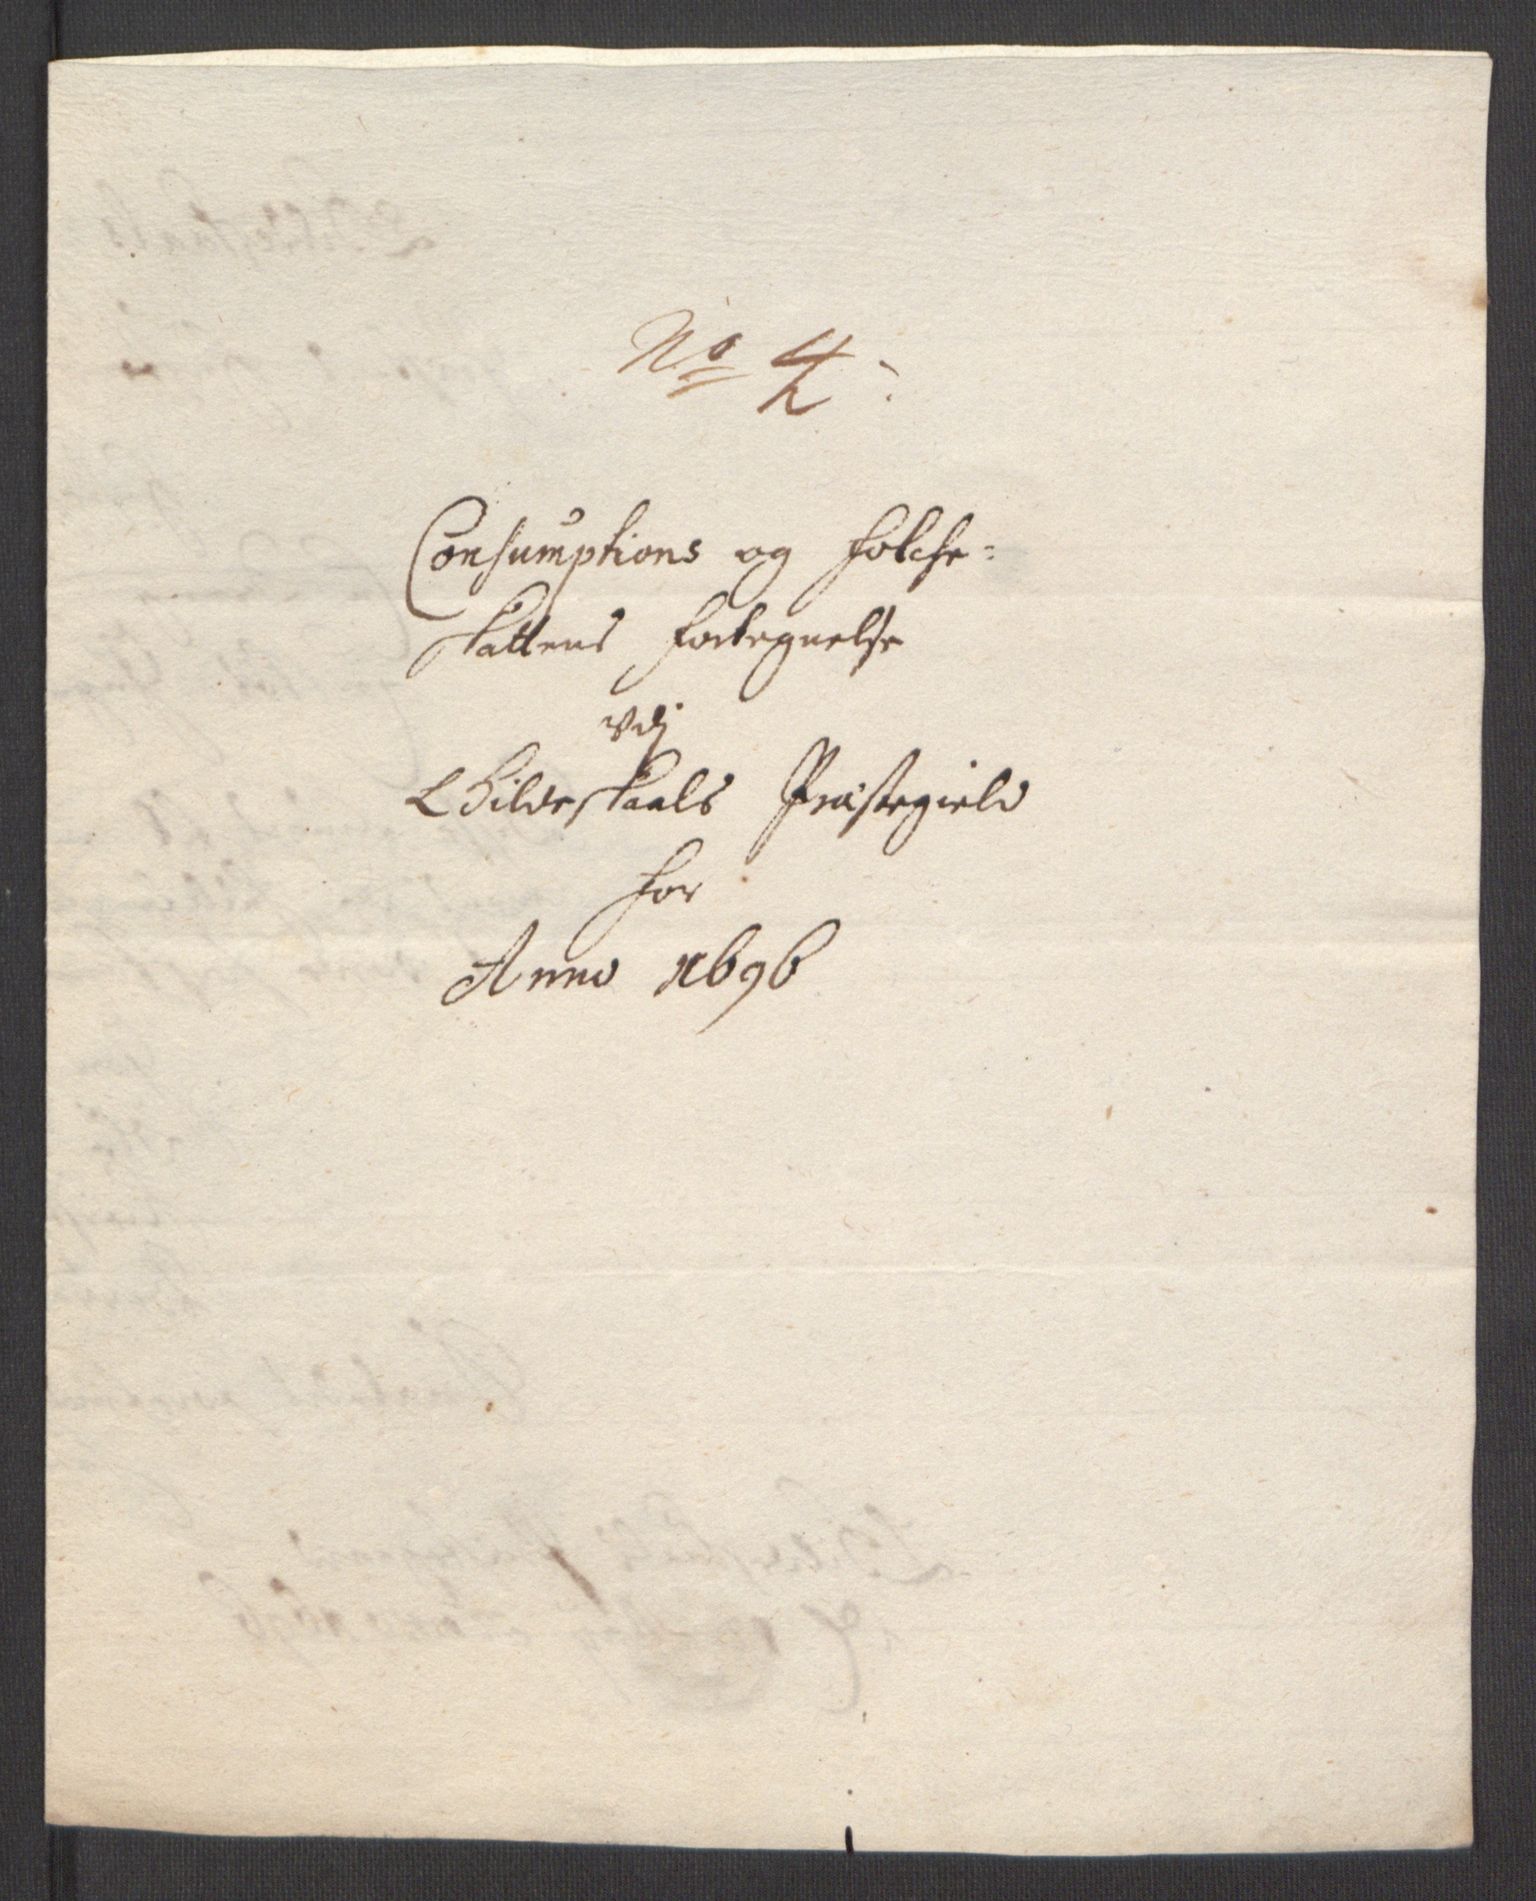 No 4:
Consumptions og folche=
skattens fortegnelse
udj
Gildeskaals Præstegield
for
Anno 1696